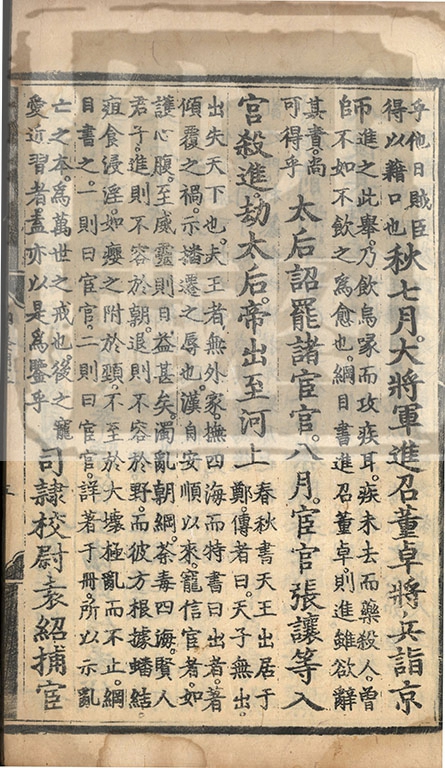 乎他日賊臣
得以藉口也
秋七月。大將軍進召董卓將兵詣京
師
進之此舉。乃飲烏家而攻疾耳。疾未去而藥殺人。曾
不如不飲之為愈也。綱目書進召董卓。則進雖欲辭
其責。尚
可得乎
太后詔罷諸宦官。八月。宦官張讓等入
宮殺進。劫太后。帝出至河上
春秋書天王出居于
鄭。傳者曰。天子無出。
出失天下也。夫王者無外。家撫四海。而特書曰出者。著
傾覆之禍。示播遷之辱也。漢自安順以來。寵信宦者。如
護心腹。至威靈則日益甚矣。濁亂朝綱。荼毒四海。賢人
君子。進則不容於朝。退則不容於野。而彼方根據蟠結
疽食浸淫。如癭之附於頸。不至於大壞極亂而不止。綱
目書之。一則曰宦官。二則曰宦官。詳著于冊。所以示亂
亡之本。為萬世之戒也。後之寵
愛近習者。盍亦以是為鑒乎
司隸校尉袁紹捕宦